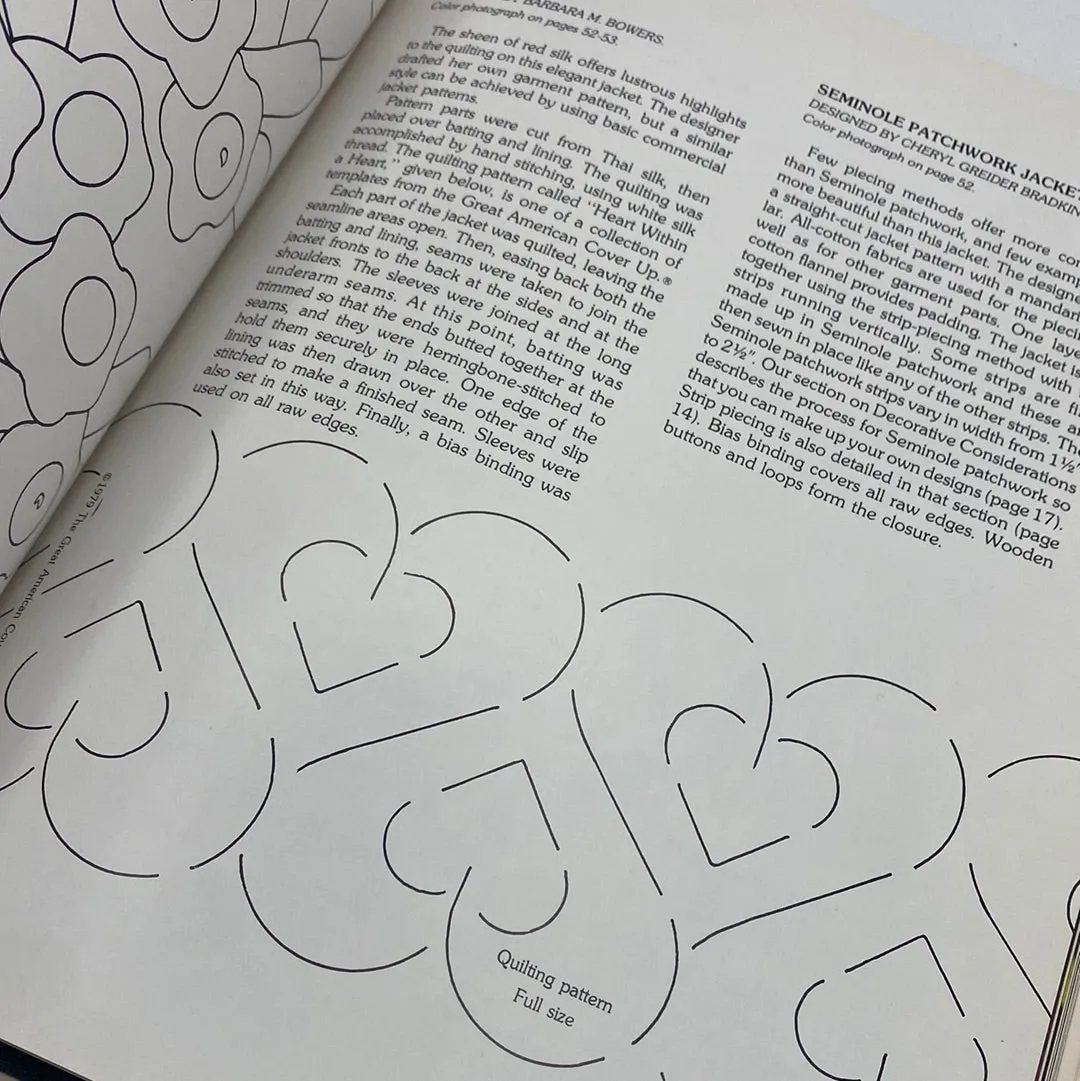 BARBARA M. BOWERS.
Color photograph on pages 52-53.
The sheen of red silk offers lustrous highlights
to the quilting on this elegant jacket. The designer
drafted her own garment pattern, but a similar
style can be achieved by using basic commercial
jacket patterns.
Pattern parts were cut from Thai silk, then
placed over batting and lining. The quilting was
accomplished by hand stitching, using white silk
thread. The quilting pattern called "Heart Within
a Heart," given below, is one of a collection of
templates from the Great American Cover Up.®
Each part of the jacket was quilted, leaving the
seamline areas open. Then, easing back both the
batting and lining, seams were taken to join the
jacket fronts to the back at the sides and at the
shoulders. The sleeves were joined at the long
underarm seams. At this point, batting was
trimmed so that the ends butted together at the
seams, and they were herringbone-stitched to
hold them securely in place. One edge of the
lining was then drawn over the other and slip
stitched to make a finished seam. Sleeves were
also set in this way. Finally, a bias binding was
used on all raw edges.
SEMINOLE PATCHWORK JACKET
DESIGNED BY CHERYL GREIDER BRADKIN
Color photograph on page 52.
Few piecing methods offer more
than Seminole patchwork, and few
more beautiful than this jacket. The
a straight-cut jacket pattern with a
lar. All-cotton fabrics are used for the
well as for other garment parts. One
cotton flannel provides padding. The jacket is
together using the strip-piecing method with
strips running vertically. Some strips are
made up in Seminole patchwork and these
then sewn in place like any of the other strips.
Seminole patchwork strips vary in width from 1½"
to 2½". Our section on Decorative Considerations
describes the process for Seminole patchwork so
that you can make up your own designs (page 17).
Strip piecing is also detailed in that section (page
14). Bias binding covers all raw edges. Wooden
buttons and loops form the closure.
D
G
©1979 The Great American
Quilting pattern
Full size